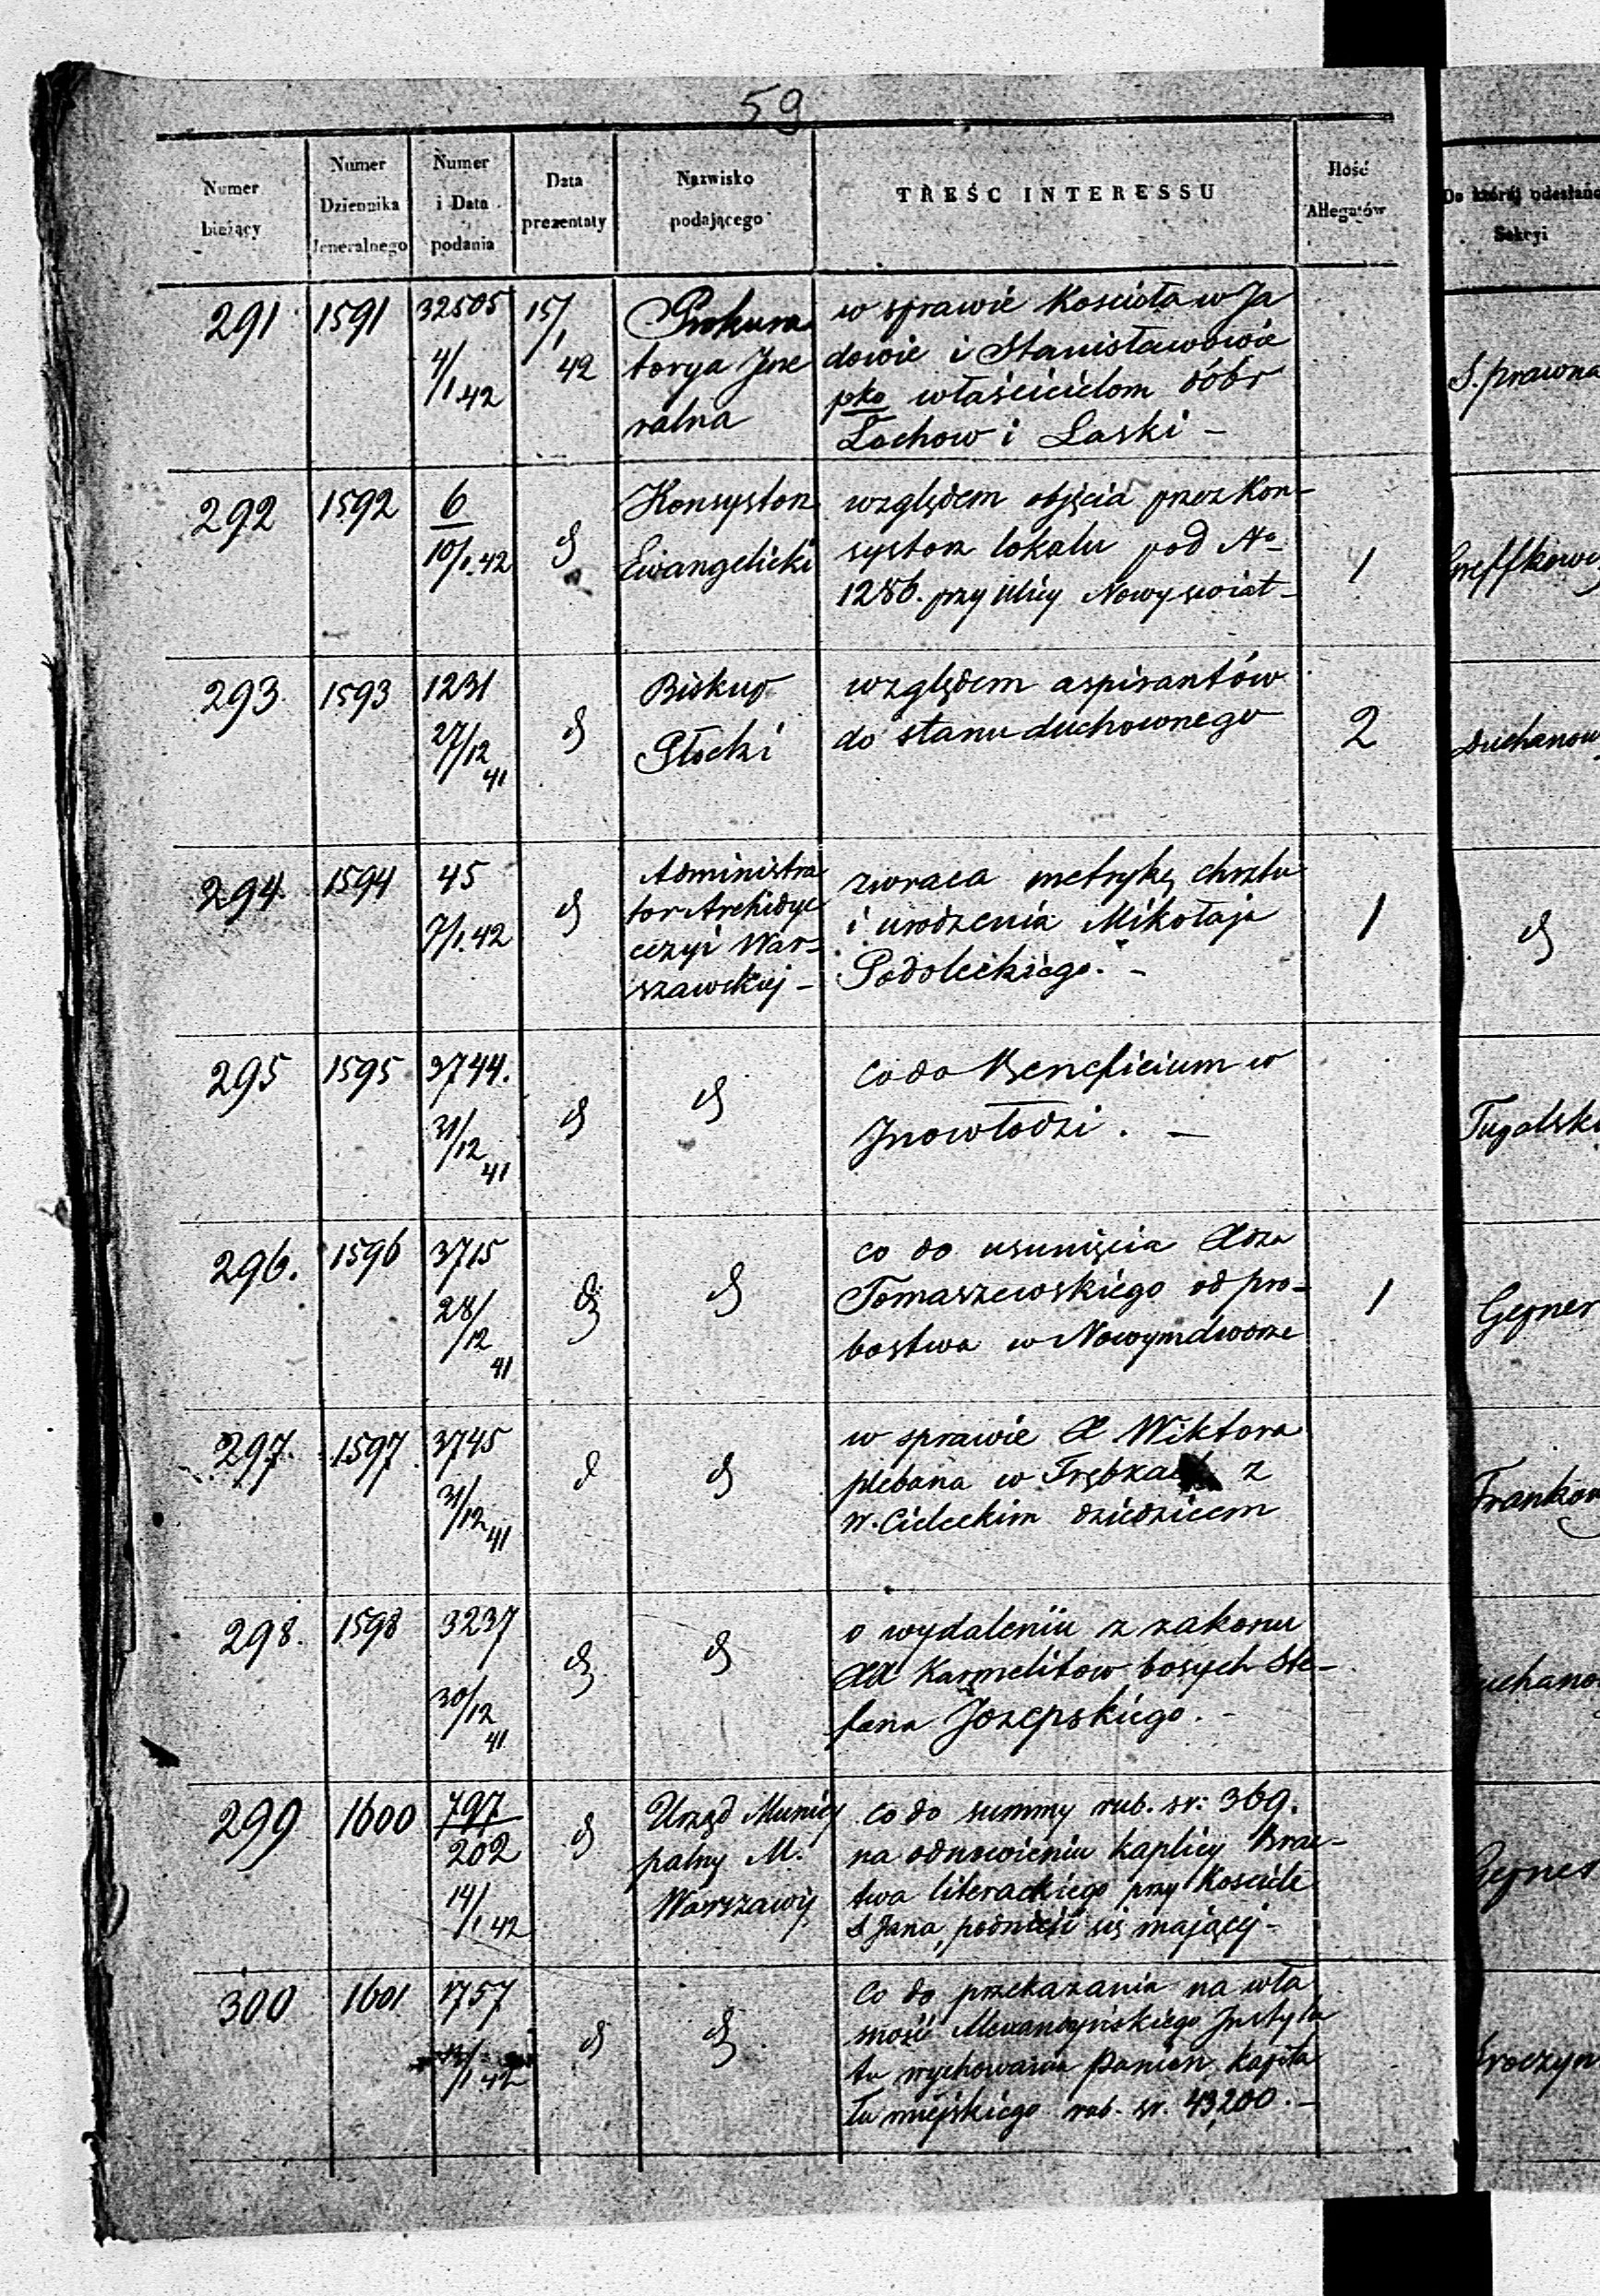 59
Numer bieżący | Numer Dziennika Jeneralnego | Numer i Data podania | Data prezentaty | Nazwisko podającego | TREŚĆ INTERESSU | Ilość Allegatów | Do której odesłano Sekcyi
291 | 1591 | 32505 | 15/1 42 | Prokura | w sprawie Kościoła w Ja
4/1.42 | torya Jene | dowie i Stanisławowie | S. prawna
ralna | pko właścicielom dóbr
Łochow i Laski –
292 | 1592 | 6 | Konsystorz | względem objęcia przez Kon-
10/1.42 | d | Ewangelicki | systorz lokalu pod No | 1
1286. przy Ulicy Nowy swiat –
293. | 1593 | 1231 | Biskup | względem aspirantów
27/12 41 | d | Płocki | do stanu duchownego | 2
294. | 1594 | 45 | Administra | zwraca metrykę chrztu
7/1.42 | d | tor Archidye | i urodzenia Mikołaja | 1 | d
cezyi War- | Podoleckiego. –
szawskiej –
295 | 1595 | 3744. | d | co do Beneficium w
31/12 41 | d | Inowłodzi. –
296. | 1596 | 3715 | co do usunięcia Xdza
28/12 41 | d | d | Tomaszewskiego od pro- | 1
bostwa w Nowymdworze
297. | 1597 | 3745 | w sprawie X Wiktora
31/12 41 | d | d | plebana w Trębkach z
W. Cieleckim dziedzicem
298. | 1598 | 3237 | o wydaleniu z zakonu
30/12 41 | d | d | XX Karmelitow bosych Ste-
fana Jozepskiego. –
299 | 1600 | 797/202 | d | Urząd Munici | co do summy rub. sr: 369.
14/1 42 | palny M. | na odnowieniu kaplicy Brac-
Warszawy | twa literackiego przy Kosciele
S Jana, podnieść się mającej –
300 | 1601 | 1757 | co do przekazania na wła
d | d | sność Alexandryńskiego Instytu
/1 42 | tu wychowania Panien, kapita
łu miejskiego rub. sr. 43,200. –